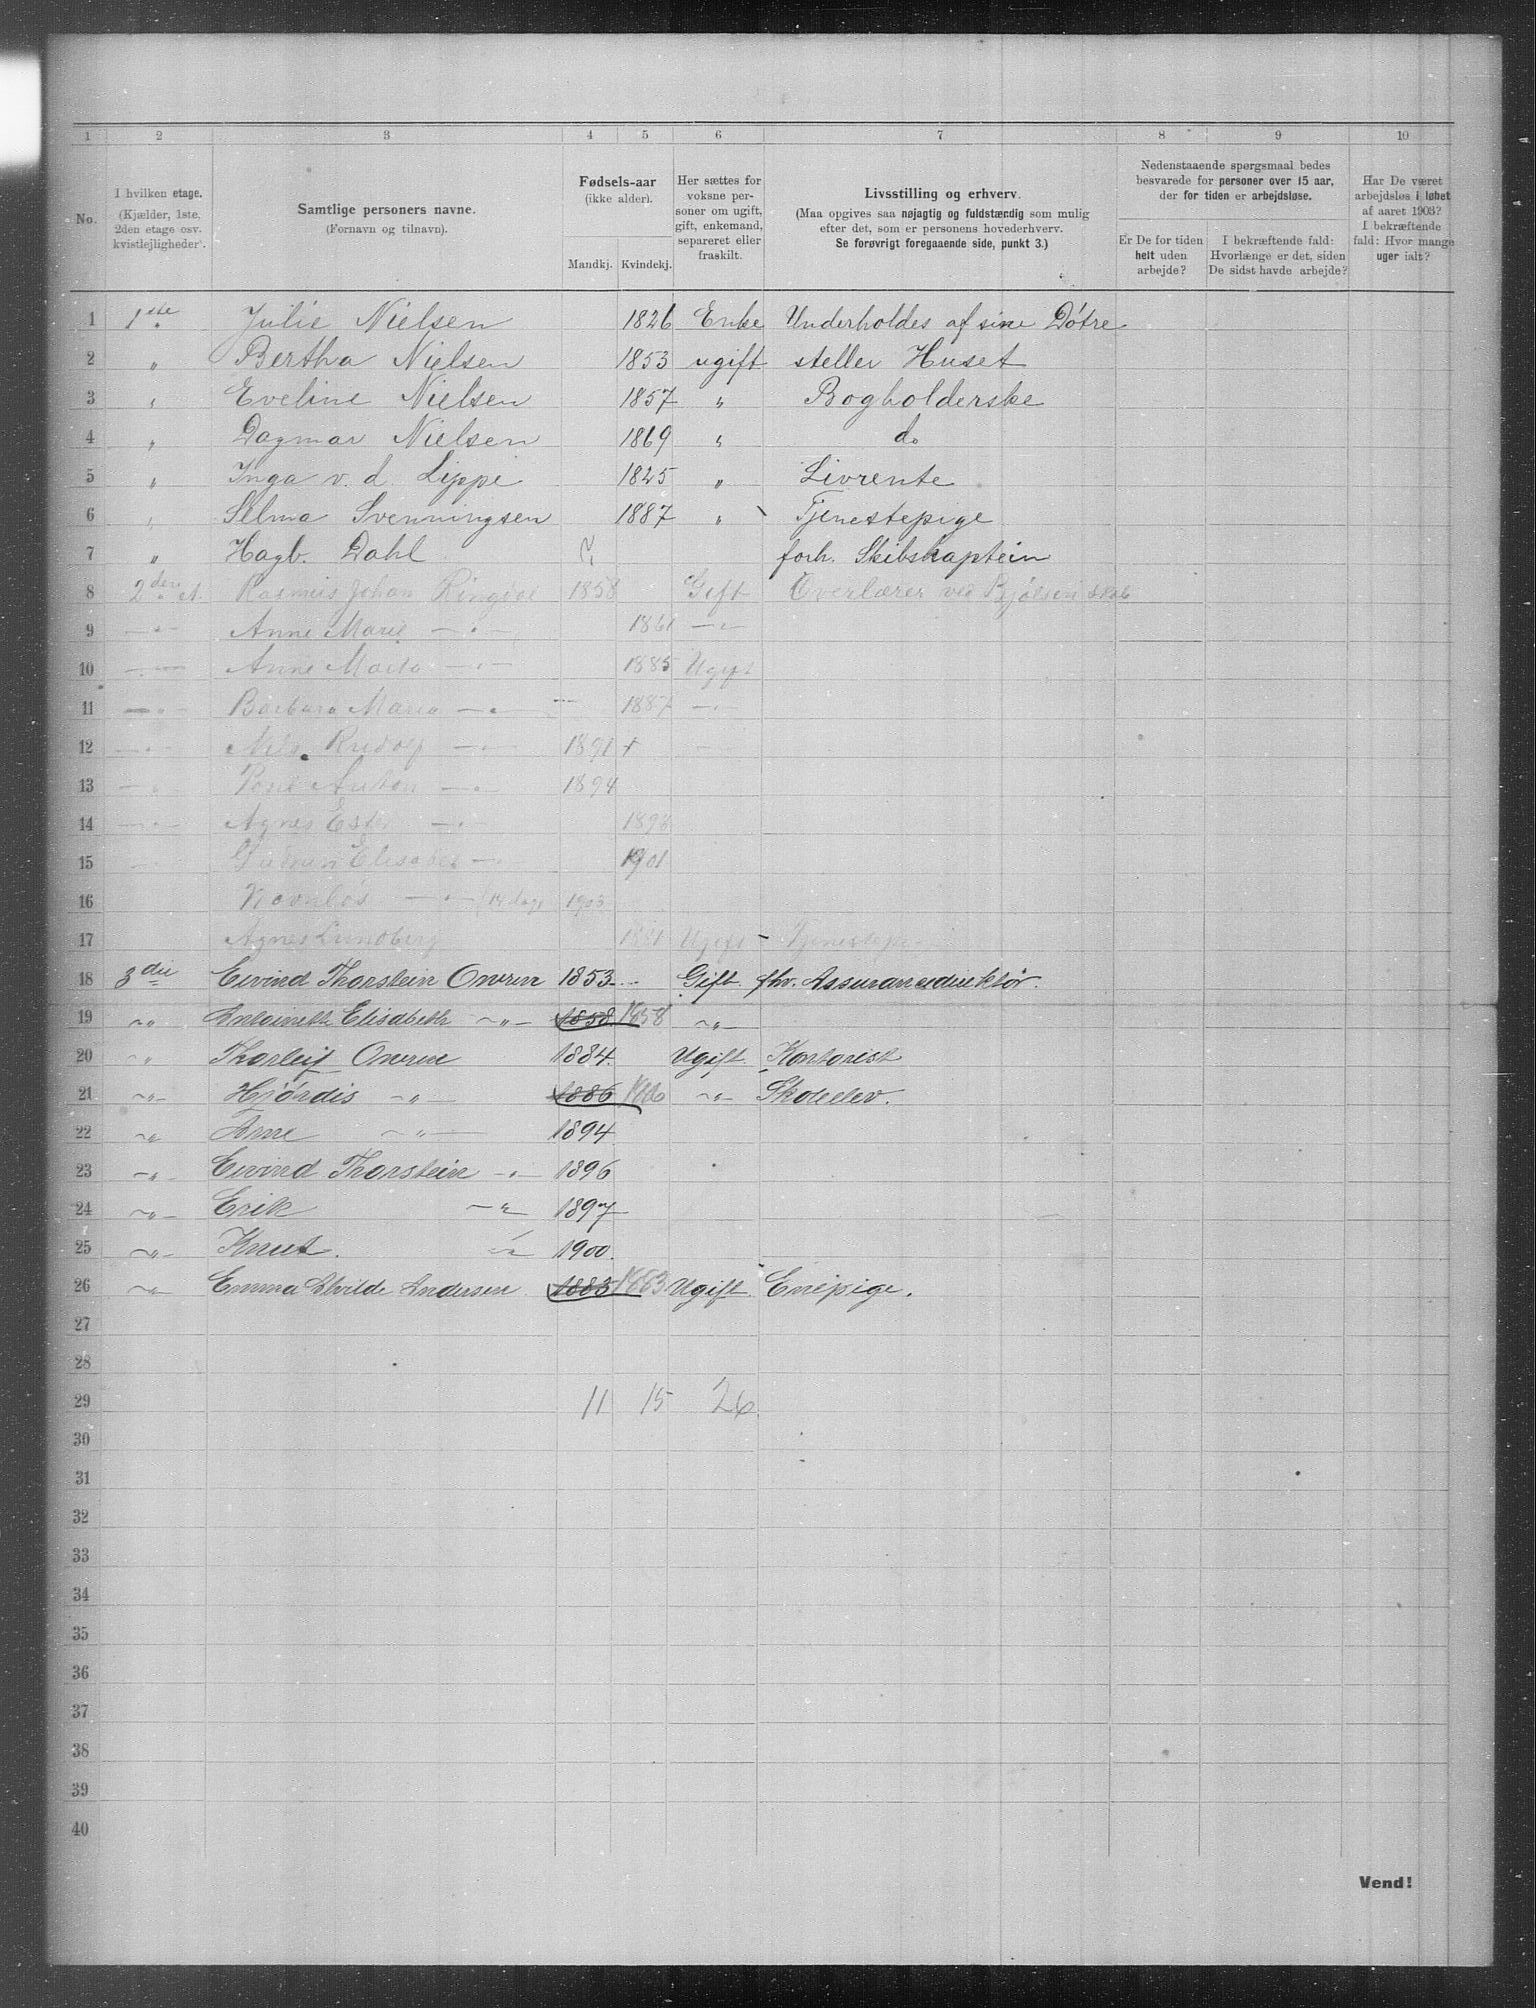 1 2 3 4 5 6 7 8 9 10
No.
I hvilken etage.
(Kjælder, 1ste,
2den etage osv.
kvistlejligheder).
Samtlige personers navne.
(Fornavn og tilnavn).
Fødsels-aar
(ikke alder).
Mandkj. Kvindekj.
Her sættes for
voksne per-
soner om ugift,
gift, enkemand,
separeret eller
fraskilt.
Livsstilling og erhverv.
(Maa opgives saa nøjagtig og fuldstændig som mulig
efter det, som er personens hovederhverv.
Se forøvrigt foregaaende side, punkt 3.)
Nedenstaaende spørgsmaal bedes
besvarede for personer over 15 aar,
der for tiden er arbejdsløse.
Er De for tiden
helt uden
arbejde?
I bekræftende fald:
Hvorlænge er det, siden
De sidst havde arbejde?
Har De været
arbejdsløs i løbet
af aaret 1903?
I bekræftende
fald: Hvor mange
uger ialt?
1 1ste Julie Nielsen 1826 Enke Underholdes af sine Døtre
2 " Bertha Nielsen 1853 ugift steller Huset
3 " Eveline Nielsen 1857 " Bogholderske
4 " Dagmar Nielsen 1869 " do
5 " Inga v. d. Lippe 1825 " Livrente
6 " Selma Svenningsen 1887 " Tjenestepige
7 " Hagb. Dahl ? forh. Skibskaptein
8 2den A. Rasmus Johan Ringdal 1858 Gift Overlærer ved Bjølsen skole
9 —"— Anne Marie —"— 1861 —"—
10 —"— Anne Marta —"— 1885 Ugift
11 —"— Barbara Maria —"— 1887 —"—
12 —"— Nils Rudolf —"— 1891 +
13 —"— Poul Anton —"— 1894
14 —"— Agnes Ester —"— 1898
15 —"— Gudrun Elisabet —"— 1901
16 Navnløs —"— (14 dage 1903
17 Agnes Lundberg 1881 Ugift Tjenestepi
18 3die Eivind Thorstein Omren 1853 Gift fhv. Assurancedirektør.
19 —"— Antoinette Elisabeth —"— 1858 1858 —"—
20 —"— Thorleif Omren 1884. Ugift. Kontorist
21 —"— Hjördis —"— 1886 1886 —"— Skoleelev.
22 —"— Arne —"— 1894
23 —"— Eivind Thorstein —"— 1896
24 —"— Erik —"— 1897
25 —"— Knut. —"— 1900.
26 —"— Emma Alvilde Andersen 1883 1883 Ugift Enepige.
27
28
29 11 15 26
30
31
32
33
34
35
36
37
38
39
40
Vend!